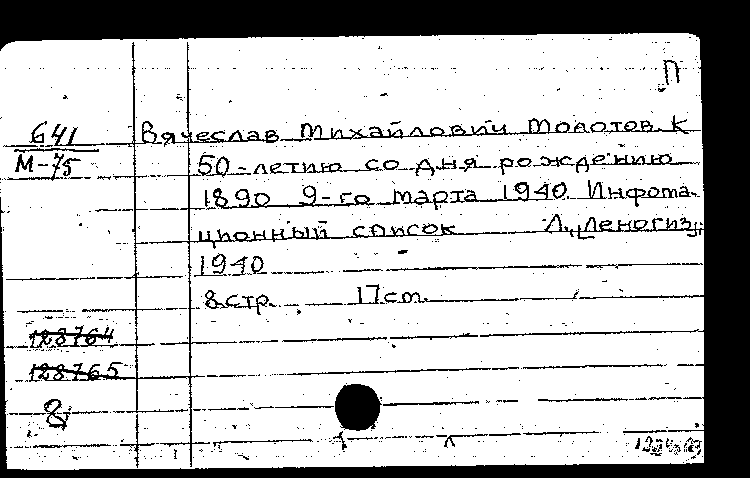 П
641
М-75
Вячеслав Михайлович Молотов К
50-летию со дня рождению
1890 9-го марта 1940. Инфома-
ционный список Л. „Леногиз„
1940
8 стр. 17 cm.
128764
128765